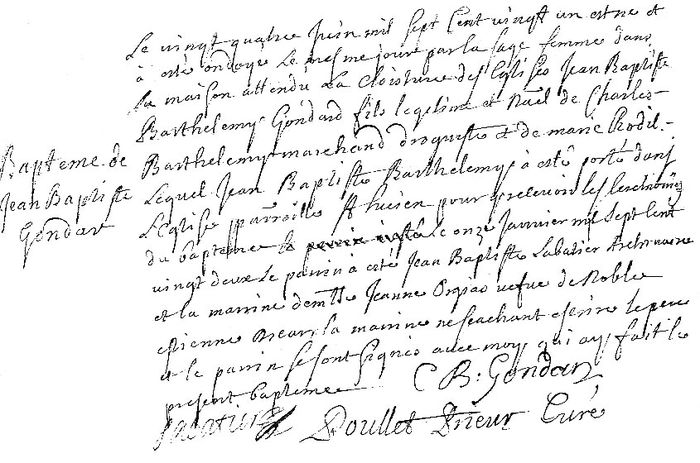 Le vingt quatre Juin mil sept Cent vingt un est né et
à esté ondoyé Le mesme jour par la sage femme dans
sa maison attendu La Cloisture des Eglises Jean Baptiste
Barthelemy Gondard fils legetime et Naēl de Charles
Barthelemy marchand drogueste et de marie Rodil
Baptême de
Jean Baptiste
Gondar
Lequel Jean Baptiste Barthelemy à esté porté dans
L'Eglise parroisse pour y recevoir les ceremonies
du baptême le onze Janvier mil sept Cent
vingt deux Le parrin à esté Jean Baptiste Labatier
et la marrine demlle Jeanne vefue de Noble
estienne la marrine ne scachant escrire le pere
et le parrin se sont signés avec moy qui ay fait le
present baptême
C B. Gondar
Doullet Prieur Curé